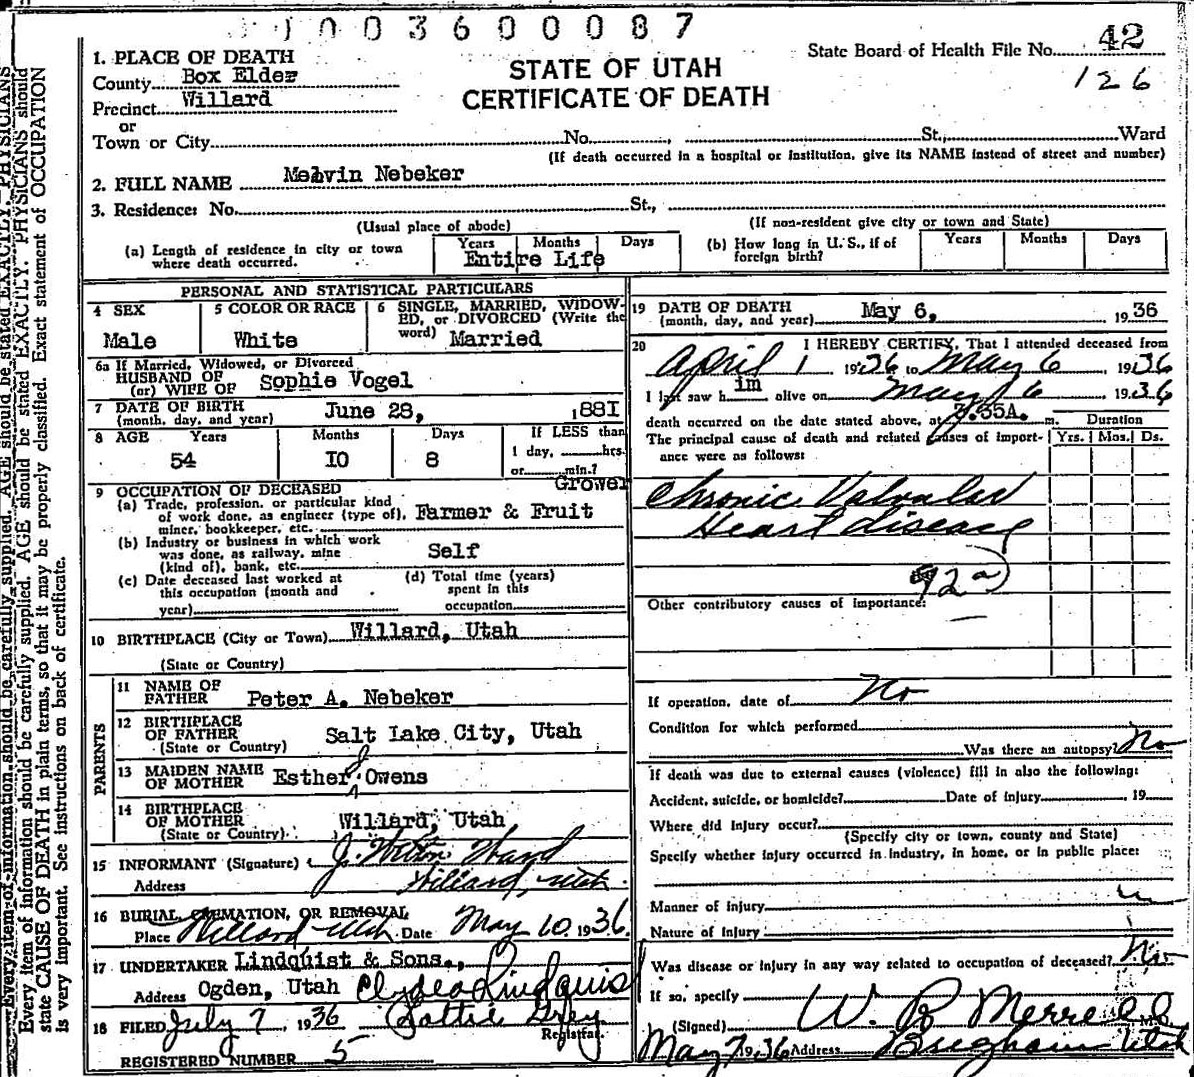 1003600087
State Board of Health File No. 42
126
1. PLACE OF DEATH
County Box Elder
Precinct Willard
or
Town or City No. St., Ward
STATE OF UTAH
CERTIFICATE OF DEATH
(If death occurred in a hospital or institution, give its NAME instead of street and number)
2. FULL NAME Melvin Nebeker
3. Residence: No. St.,
(Usual place of abode) (If non-resident give city or town and State)
(a) Length of residence in city or town where death occurred. Years Months Days
Entire Life
(b) How long in U. S., if of foreign birth? Years Months Days
PERSONAL AND STATISTICAL PARTICULARS
4 SEX Male
5 COLOR OR RACE White
6 SINGLE, MARRIED, WIDOWED, or DIVORCED (Write the word) Married
6a If Married, Widowed, or Divorced
HUSBAND OF
(or) WIFE OF Sophie Vogel
7 DATE OF BIRTH
(month, day, and year) June 28, 1881
8 AGE Years Months Days If LESS than
1 day, hrs.
or min.?
54 10 8
9 OCCUPATION OF DECEASED
(a) Trade, profession, or particular kind
of work done, as engineer (type of),
miner, bookkeeper, etc. Farmer & Fruit Grower
(b) Industry or business in which work
was done, as railway, mine
(kind of), bank, etc. Self
(c) Date deceased last worked at
this occupation (month and
year)
(d) Total time (years)
spent in this
occupation
10 BIRTHPLACE (City or Town) Willard, Utah
(State or Country)
PARENTS
11 NAME OF FATHER Peter A. Nebeker
12 BIRTHPLACE OF FATHER
(State or Country) Salt Lake City, Utah
13 MAIDEN NAME OF MOTHER Esther Owens
14 BIRTHPLACE OF MOTHER
(State or Country) Willard, Utah
15 INFORMANT (Signature) J. Ward
Address Willard, Utah
16 BURIAL, CREMATION, OR REMOVAL
Place Willard Utah Date May 10, 1936
17 UNDERTAKER Lindquist & Sons.,
Address Ogden, Utah Clyde Lindquist
18 FILED July 7, 1936 Lottie Grey
Registrar.
REGISTERED NUMBER 5
19 DATE OF DEATH
(month, day, and year) May 6, 1936
20 I HEREBY CERTIFY, That I attended deceased from
April 1 1936 to May 6, 1936
I last saw h im alive on May 6 1936
death occurred on the date stated above, at 3.35A. m.
The principal cause of death and related causes of importance were as follows:
Duration
Yrs. Mos. Ds.
Chronic Valvular
Heart disease
92a
Other contributory causes of importance:
If operation, date of No
Condition for which performed
Was there an autopsy? No
If death was due to external causes (violence) fill in also the following:
Accident, suicide, or homicide? Date of injury 19
Where did injury occur?
(Specify city or town, county and State)
Specify whether injury occurred in industry, in home, or in public place:
Manner of injury
Nature of injury
Was disease or injury in any way related to occupation of deceased? No
If so, specify
(Signed) W. R. Merrell M.D.
May 7, 1936 Address Brigham Utah
Every item of information should be carefully supplied. AGE should be stated EXACTLY. PHYSICIANS should
state CAUSE OF DEATH in plain terms, so that it may be properly classified. Exact statement of OCCUPATION
is very important. See instructions on back of certificate.